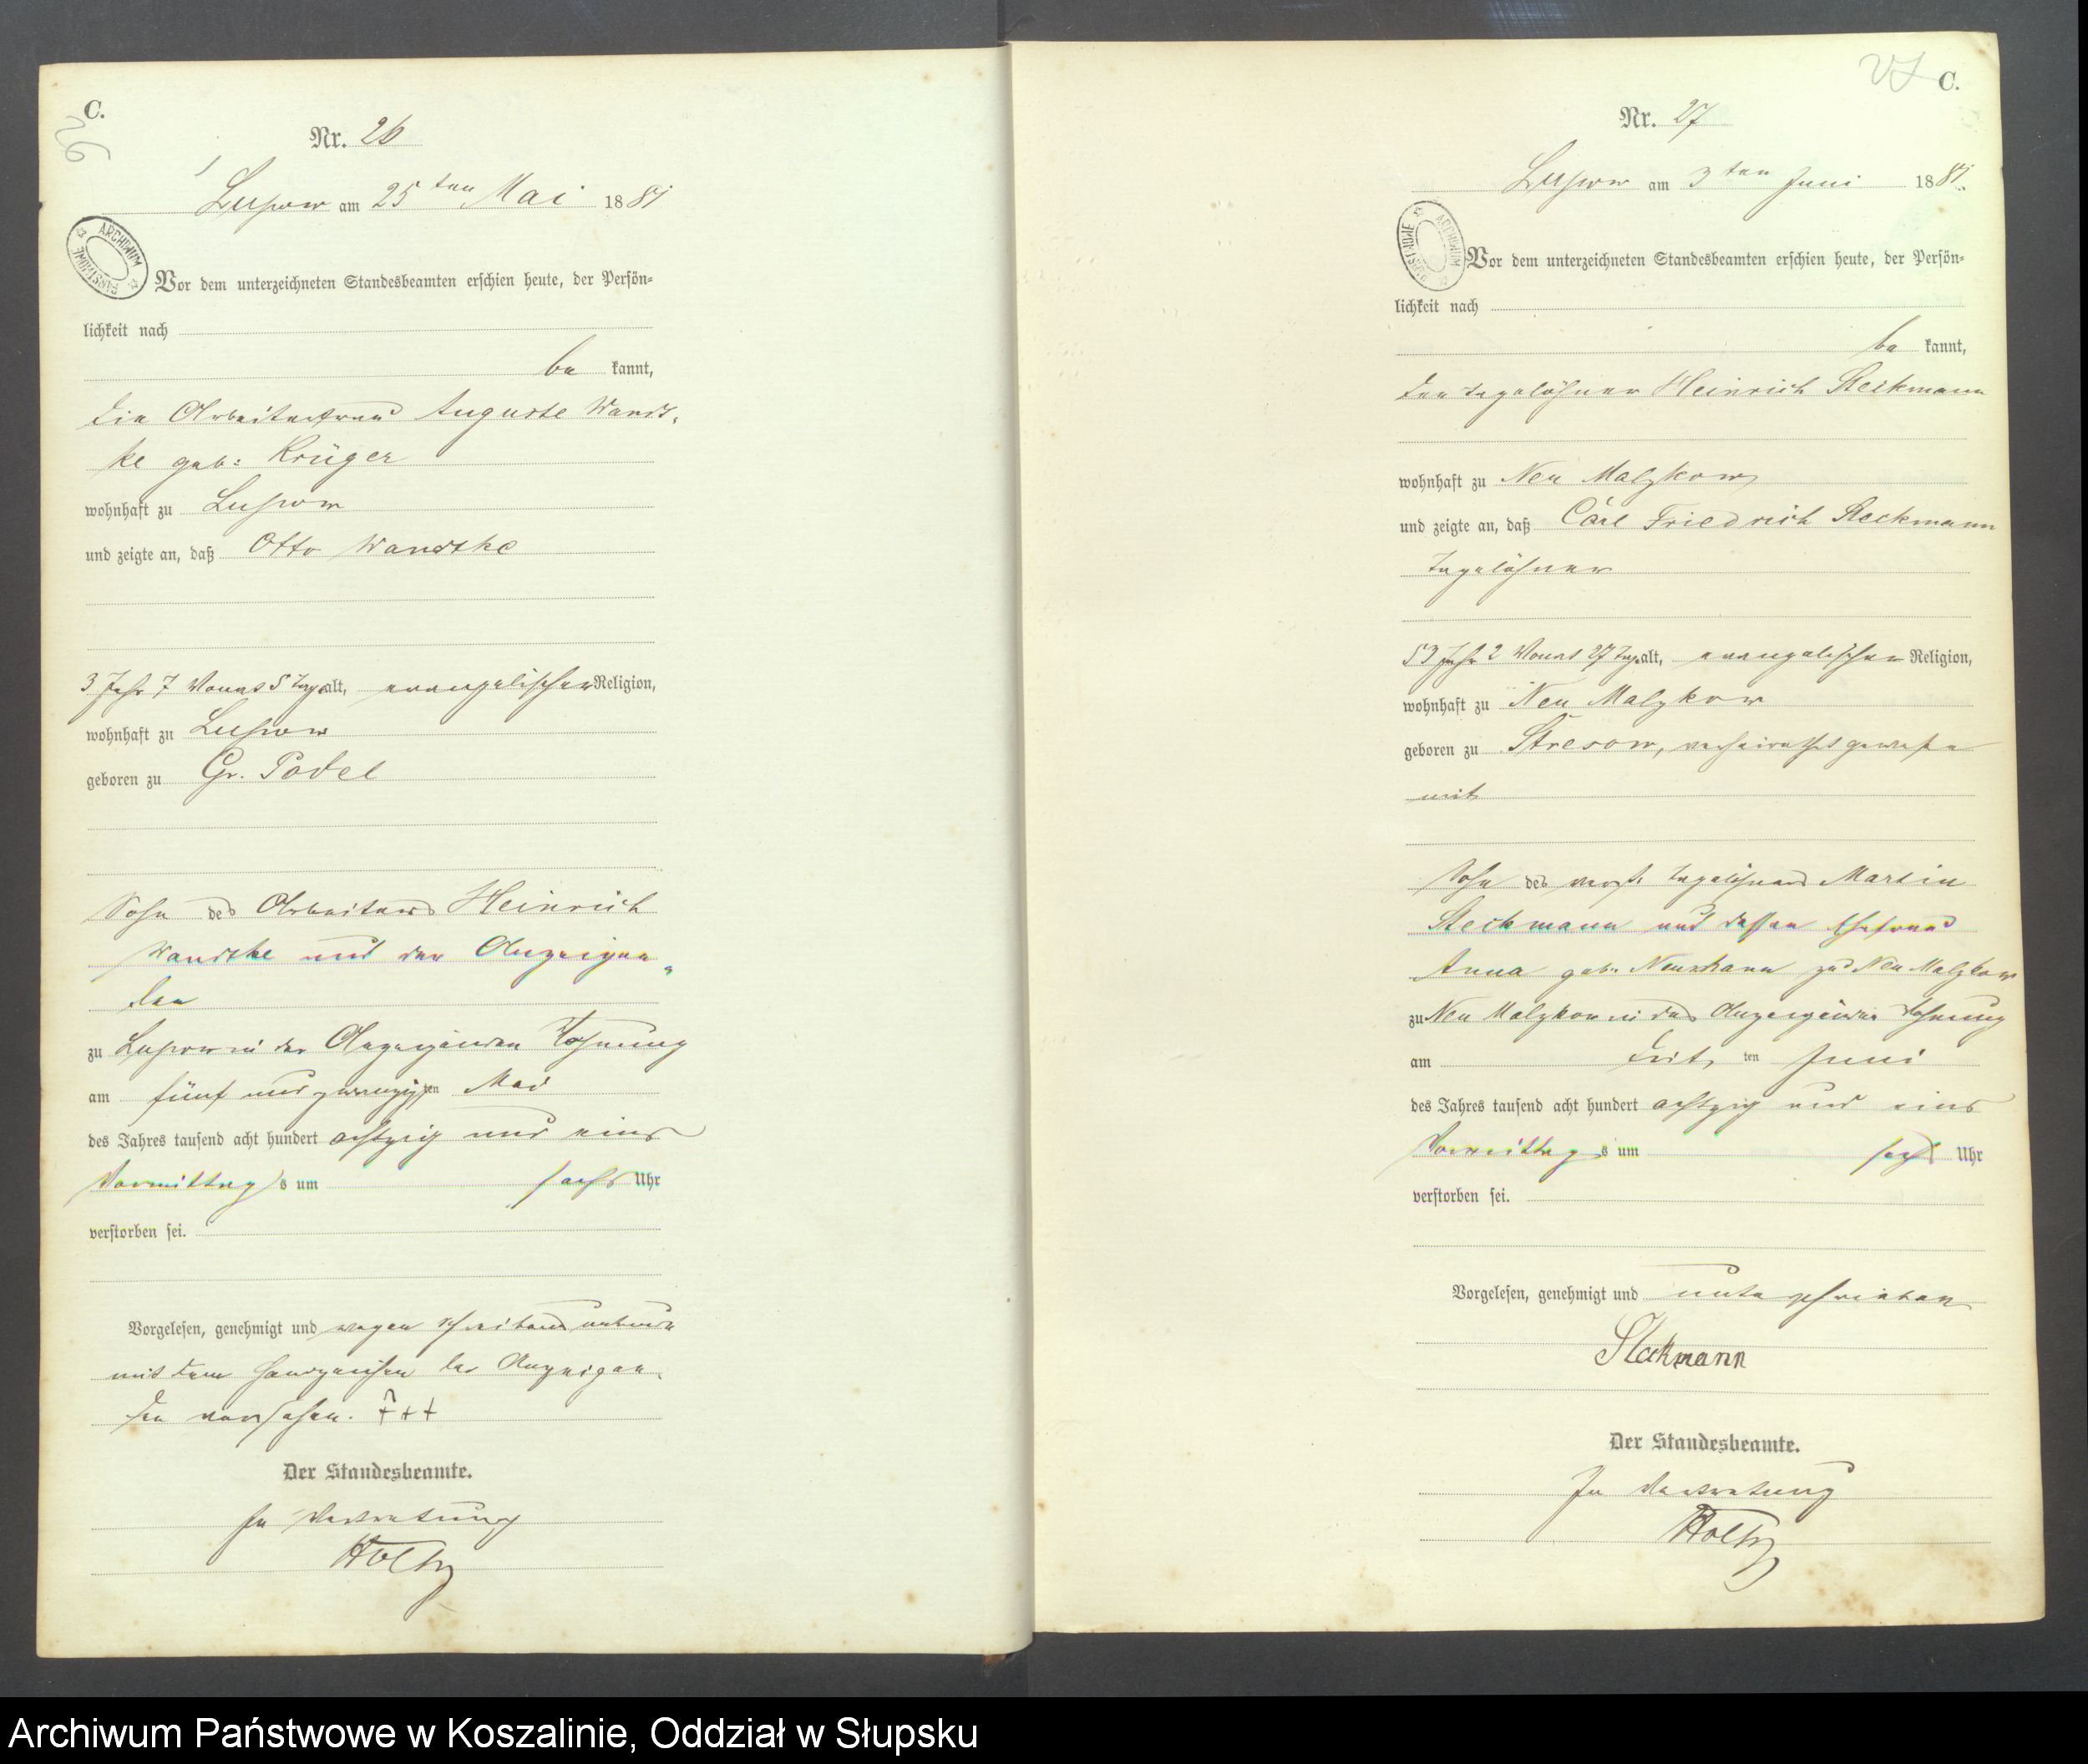 C.
26
Nr. 26
Lupow am 25ten Mai 1881
ARCHIWUM PAŃSTWOWE
Vor dem unterzeichneten Standesbeamten erschien heute, der Persön-
lichkeit nach
be kannt,
die Arbeiterfrau Auguste Wandt-
ke geb: Krüger
wohnhaft zu Lupow
und zeigte an, daß Otto Wandtke
3 Jahr 7 Monat 5 Tage alt, evangelischer Religion,
wohnhaft zu Lupow
geboren zu Gr. Podel
Sohn des Arbeiters Heinrich
Wandtke und der Anzeigen-
den
zu Lupow in der Anzeigenden Wohnung
am fünf und zwanzigsten Mai
des Jahres tausend acht hundert achtzig und eins
Vormittag s um sechs Uhr
verstorben sei.
Vorgelesen, genehmigt und wegen schreibens
mit dem Handzeichen der Anzeigen-
den versehen. +++
Der Standesbeamte.
In Vertretung
Holtz
27 C.
Nr. 27
Lupow am 3ten Juni 1881.
ARCHIWUM PAŃSTWOWE
Vor dem unterzeichneten Standesbeamten erschien heute, der Persön-
lichkeit nach
be kannt,
der Tagelöhner Heinrich Steckmann
wohnhaft zu Neu Malzkow
und zeigte an, daß Carl Friedrich Steckmann
Tagelöhner
53 Jahr 2 Monat 27 Tage alt, evangelischer Religion,
wohnhaft zu Neu Malzkow
geboren zu Stresow, verheirathet gewesen
mit
Sohn des verst. Tagelöhners Martin
Steckmann und dessen Ehefrau
Anna geb: zu Neu Malzkow
zu Neu Malzkow in des Anzeigenden Wohnung
am drit ten Juni
des Jahres tausend acht hundert achtzig und eins
Vormittag s um sechs Uhr
verstorben sei.
Vorgelesen, genehmigt und unterschrieben
Steckmann
Der Standesbeamte.
In Vertretung
Holtz
Archiwum Państwowe w Koszalinie, Oddział w Słupsku